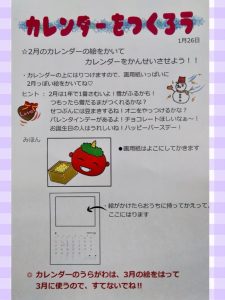 カレンダーをつくろう
1月26日
☆2月のカレンダーの絵をかいて
カレンダーをかんせいさせよう！！
・カレンダーの上にはりつけますので、画用紙いっぱいに
2月っぽい絵をかいてね♡
ヒント：2月は1年で1番さむいよ！雪がふるかも！
つもったら雪だるまがつくれるかな？
せつぶんには豆まきするね！オニをやっつけるかな？
バレンタインデーがあるよ！チョコレートほしいなぁ～！
お誕生日の人はうれしいね！ハッピーバースデー！
みほん
●画用紙はよこにしてかきます
絵がかけたらおうちに持ってかえって、
ここにはります
✿ カレンダーのうらがわは、3月の絵をはって
3月に使うので、すてないでね!!